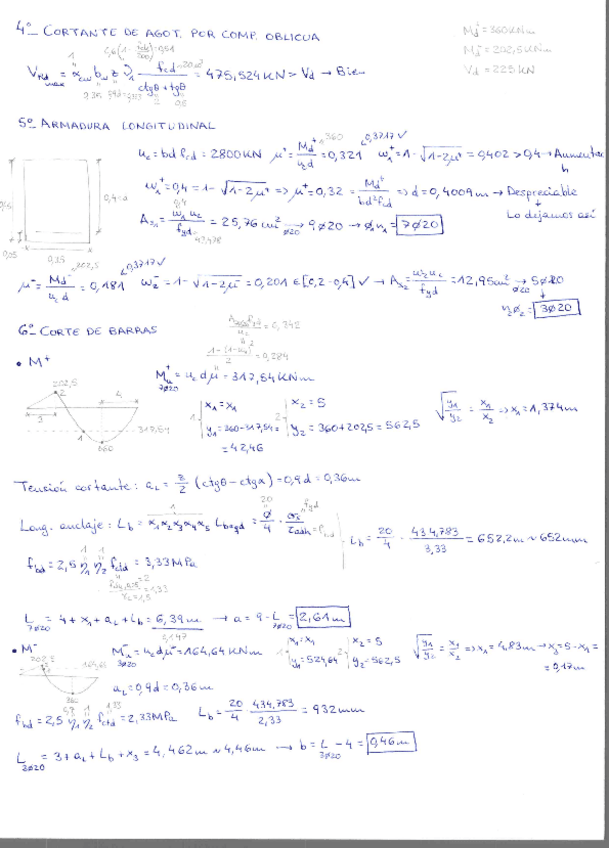 4º CORTANTE DE AGOT. POR COMP. OBLICUA
Md⁺ = 360 KNm
Md⁻ = 202,5 KNm
Vd = 225 KN
V Rd max = αcw bw z ν1 fcd / (ctgθ + tgθ) = 475,524 KN > Vd → Bien
5º ARMADURA LONGITUDINAL
uc = bd fcd = 2800 KN μ⁺ = Md⁺ / uc d = 0,321 ω1⁺ = 1 - √(1-2μ⁺) = 0,402 > 0,4 → Aumentar h
ω1⁺ = 0,4 = 1 - √(1-2μ⁺) ⇒ μ⁺ = 0,32 = Md⁺ / bd² fcd ⇒ d = 0,4009 m → Despreciable
Lo dejamos así
As1 = ω1 uc / fyd = 25,76 cm² → 9ø20 → 7ø20
0,05
0,35
μ⁻ = Md⁻ / uc d = 0,181 ω2⁻ = 1 - √(1-2μ⁻) = 0,201 ∈ [0,2-0,4] ✓ → As2 = ω2 uc / fyd = 12,95 cm² → 5ø20
3ø20
6º CORTE DE BARRAS
= 0,342
= 0,284
• M⁺
Mu⁺ 7ø20 = uc d μ = 317,54 KNm
202,5
317,54
360
x1 = x1
y1 = 360 - 317,54 =
= 42,46
x2 = 5
y2 = 360 + 202,5 = 562,5
√(y1/y2) = x1/x2 ⇒ x1 = 1,374 m
Tensión cortante: aL = z/2 (ctgθ - ctgα) = 0,9d = 0,36 m
Long. anclaje: Lb = α1 α2 α3 α4 α5 Lb,rqd = ø/4 · / = Lb = 20/4 · 434,783 / 3,33 = 652,2 m ≈ 652 mm
fbd = 2,5 η1 η2 fctd = 3,33 MPa
L 7ø20 = 4 + x1 + aL + Lb = 6,39 m → a = 9 - L 7ø20 = 2,61 m
• M⁻
Mu⁻ 3ø20 = uc d μ = 164,64 KNm
x1 = x1
y1 = 524,64
x2 = 5
y2 = 562,5
√(y1/y2) = x1/x2 ⇒ x1 = 4,83 m → x3 = 5 - x1 =
= 0,17 m
aL = 0,9d = 0,36 m
fbd = 2,5 η1 η2 fctd = 2,33 MPa Lb = 20/4 · 434,783 / 2,33 = 932 mm
L 3ø20 = 3 + aL + Lb + x3 = 4,462 m ≈ 4,46 m → b = L 3ø20 - 4 = 0,46 m